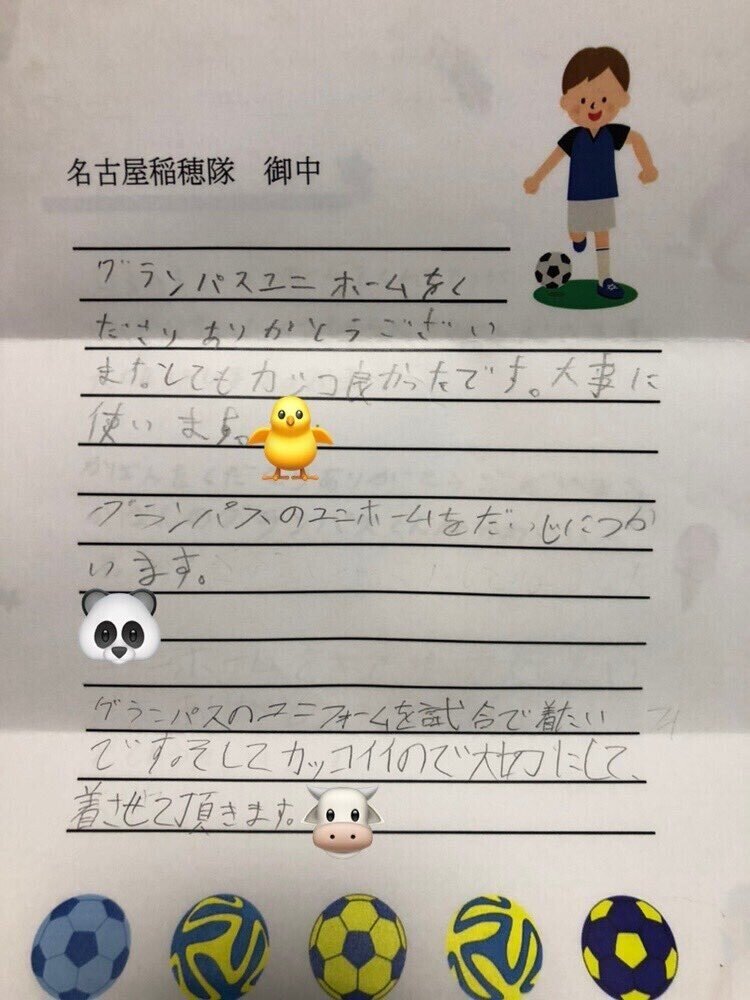 名古屋稲穂隊　御中
グランパスユニホームをく
ださりありがとうござい
ます。とてもカッコ良かったです。大事に
使います。
グランパスのユニホームをだいじにつか
います。
グランパスのユニフォームを試合で着たい
です。そしてカッコイイので大切にして、
着させて頂きます。